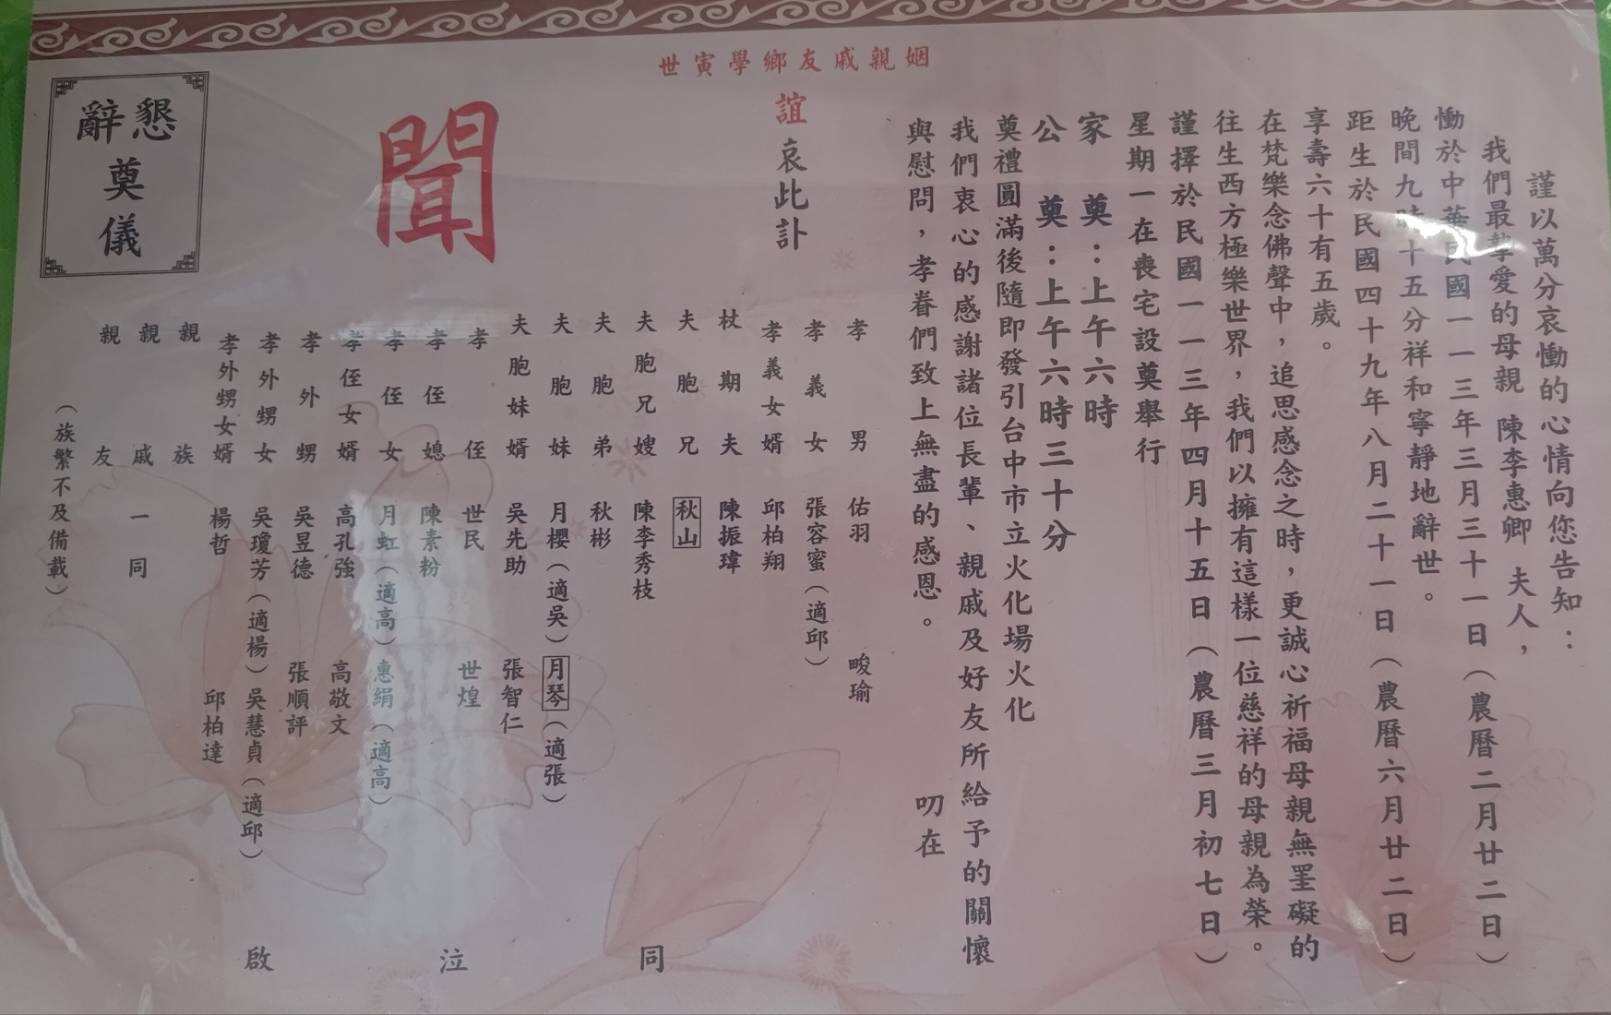 謹以萬分哀慟的心情向您告知：
我們最摯愛的母親 陳李惠卿 夫人，
慟於中華民國一一三年三月三十一日（農曆二月廿二日）
晚間九時十五分祥和寧靜地辭世。
距生於民國四十九年八月二十一日（農曆六月廿二日）
享壽六十有五歲。
在梵樂念佛聲中，追思感念之時，更誠心祈福母親無罣礙的
往生西方極樂世界，我們以擁有這樣一位慈祥的母親為榮。
謹擇於民國一一三年四月十五日（農曆三月初七日）
星期一在喪宅設奠舉行
家 奠：上午六時
公 奠：上午六時三十分
奠禮圓滿後隨即發引台中市立火化場火化
我們衷心的感謝諸位長輩、親戚及好友所給予的關懷
與慰問，孝眷們致上無盡的感恩。 叨在
姻親戚友鄉學寅世
誼哀此訃
聞
懇辭奠儀
孝男 佑羽 畯瑜
孝義女 張容蜜（適邱）
孝義女婿 邱柏翔
杖期夫 陳振瑋
夫胞兄 秋山
夫胞兄嫂 陳李秀枝
夫胞弟 秋彬
夫胞妹 月櫻（適吳） 月琴（適張）
夫胞妹婿 吳先助 張智仁
孝侄 世民 世煌
孝侄媳 陳素粉
孝侄女 月虹（適高） 惠絹（適高）
孝侄女婿 高孔強 高敬文
孝外甥 吳昱德 張順評
孝外甥女 吳瓊芳（適楊） 吳慧貞（適邱）
孝外甥女婿 楊哲 邱柏達
親族
親戚 一同
親友
（族繁不及備載）
同泣啟